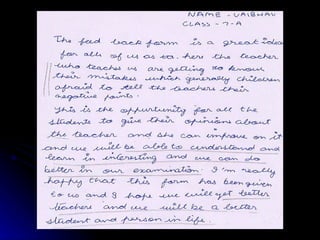 NAME - VAIBHAV.
CLASS - 7-A
The fed back form is a great idea
for all of us as ea. here the teacher
who teaches us are getting to known
their mistakes which generally children
afraid to tell the teachers their
negative points.
This is the oppurtunity for all the
students to give their opinions about
the teacher and she can improve on it
and we will be able to understand and
learn in interesting and we can do
better in our examination. I'm really
happy that this form has been given
to us and I hope we will get better
teachers and we will be a better
student and person in life.